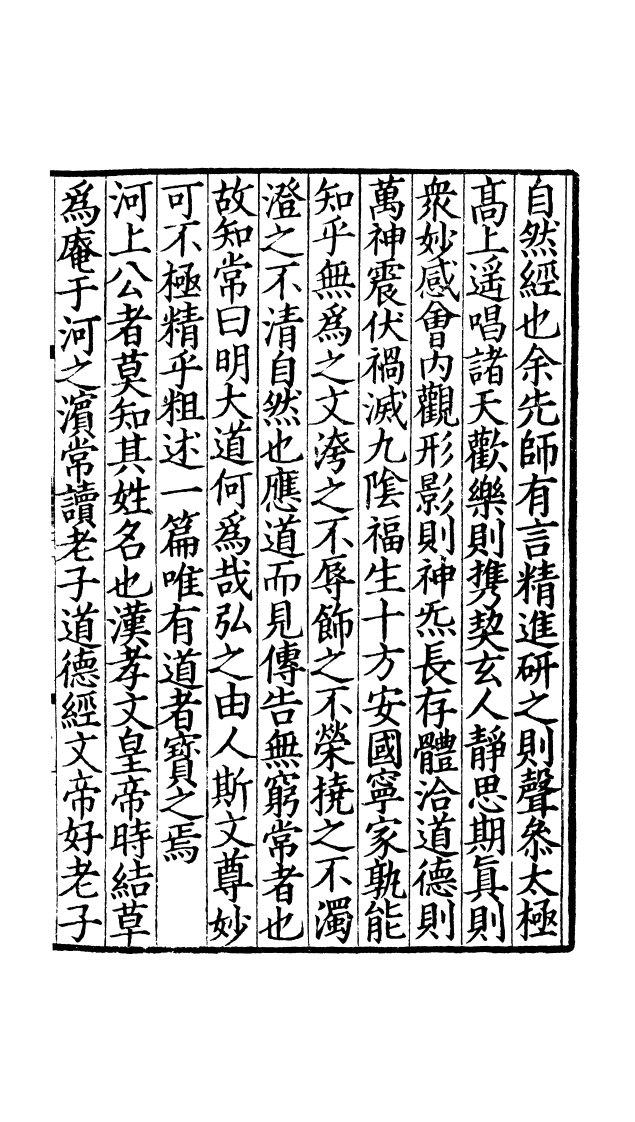 自然經也余先師有言精進研之則聲叅太極
髙上遥唱諸天歡樂則携契玄人靜思期眞則
衆妙感會内觀形影則神炁長存體洽道德則
萬神震伏禍滅九隂福生十方安國寧家孰能
知乎無爲之文洿之不辱飾之不榮撓之不濁
澄之不清自然也應道而見傳告無窮常者也
故知常曰明大道何爲哉弘之由人斯文尊妙
可不極精乎粗述一篇唯有道者寳之焉
河上公者莫知其姓名也漢孝文皇帝時結草
爲庵于河之濵常讀老子道德經文帝好老子